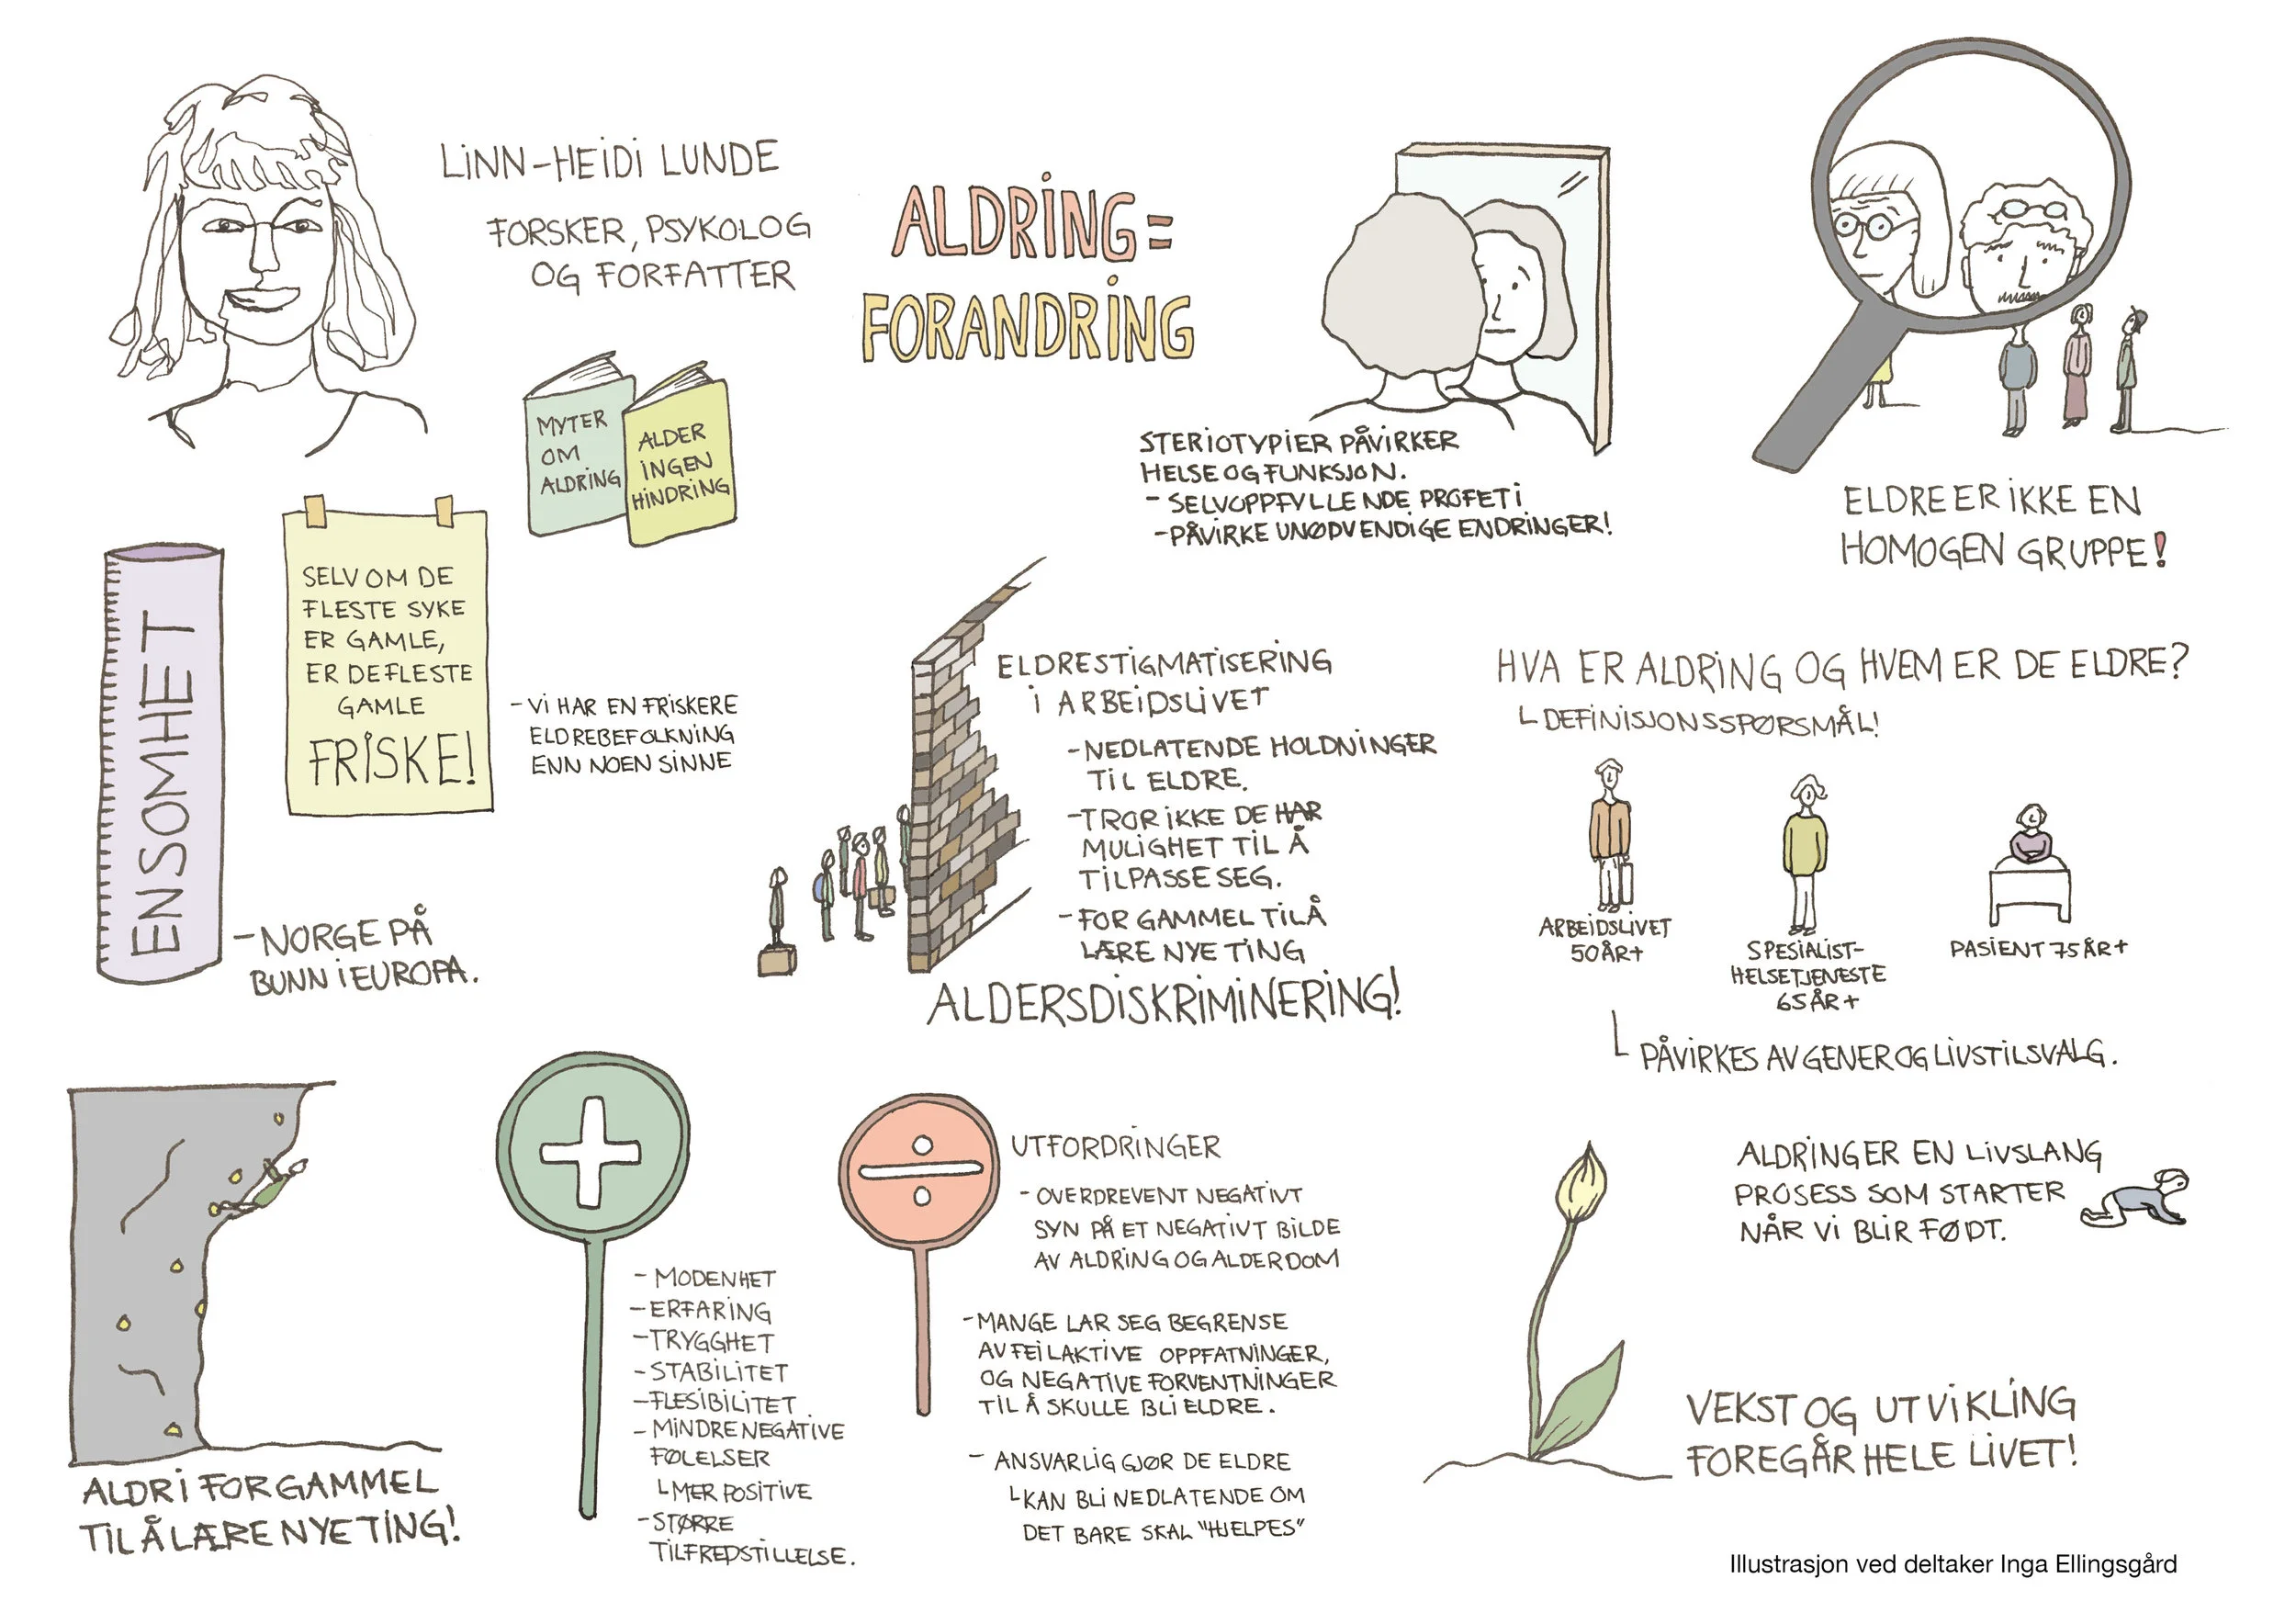 LINN-HEIDI LUNDE
FORSKER, PSYKOLOG
OG FORFATTER
MYTER
OM
ALDRING
ALDER
INGEN
HINDRING
ALDRING =
FORANDRING
STERIOTYPIER PÅVIRKER
HELSE OG FUNKSJON.
- SELVOPPFYLLENDE PROFETI
- PÅVIRKE UNØDVENDIGE ENDRINGER!
ELDRE ER IKKE EN
HOMOGEN GRUPPE!
ENSOMHET
- NORGE PÅ
BUNN I EUROPA.
SELV OM DE
FLESTE SYKE
ER GAMLE,
ER DE FLESTE
GAMLE
FRISKE!
- VI HAR EN FRISKERE
ELDREBEFOLKNING
ENN NOEN SINNE
ELDRESTIGMATISERING
I ARBEIDSLIVET
- NEDLATENDE HOLDNINGER
TIL ELDRE.
- TROR IKKE DE HAR
MULIGHET TIL Å
TILPASSE SEG.
- FOR GAMMEL TIL Å
LÆRE NYE TING
ALDERSDISKRIMINERING!
HVA ER ALDRING OG HVEM ER DE ELDRE?
DEFINISJONSSPØRSMÅL!
ARBEIDSLIVET
50 ÅR+
SPESIALIST-
HELSETJENESTE
65 ÅR+
PASIENT 75 ÅR+
PÅVIRKES AV GENER OG LIVSTILSVALG.
ALDRI FOR GAMMEL
TIL Å LÆRE NYE TING!
- MODENHET
- ERFARING
- TRYGGHET
- STABILITET
- FLESIBILITET
- MINDRE NEGATIVE
FØLELSER
MER POSITIVE
- STØRRE
TILFREDSTILLELSE.
UTFORDRINGER
- OVERDREVENT NEGATIVT
SYN PÅ ET NEGATIVT BILDE
AV ALDRING OG ALDERDOM
- MANGE LAR SEG BEGRENSE
AV FEILAKTIVE OPPFATNINGER,
OG NEGATIVE FORVENTNINGER
TIL Å SKULLE BLI ELDRE.
- ANSVARLIG GJØR DE ELDRE
KAN BLI NEDLATENDE OM
DET BARE SKAL "HJELPES"
ALDRING ER EN LIVSLANG
PROSESS SOM STARTER
NÅR VI BLIR FØDT.
VEKST OG UTVIKLING
FOREGÅR HELE LIVET!
Illustrasjon ved deltaker Inga Ellingsgård